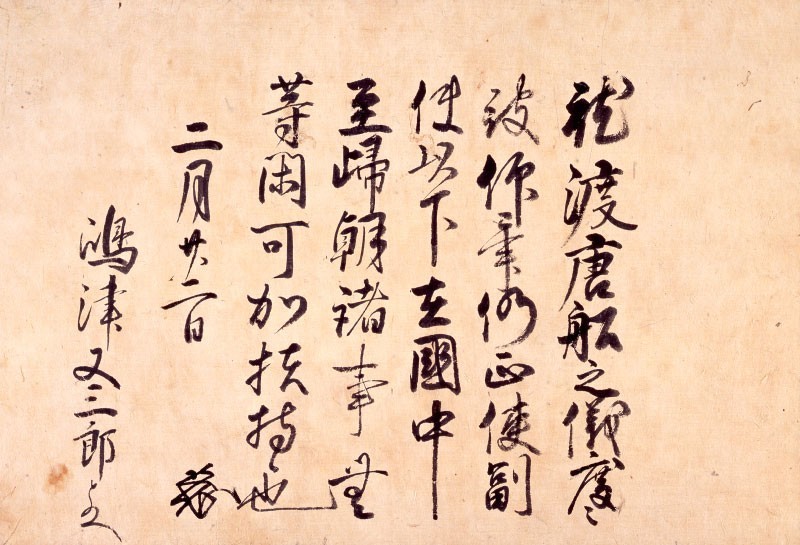 就渡唐船之儀度々
被仰事候正使副
使以下在國中
至歸朝諸事無
等閑可加扶持也
二月廿二日
嶋津又三郎とのへ